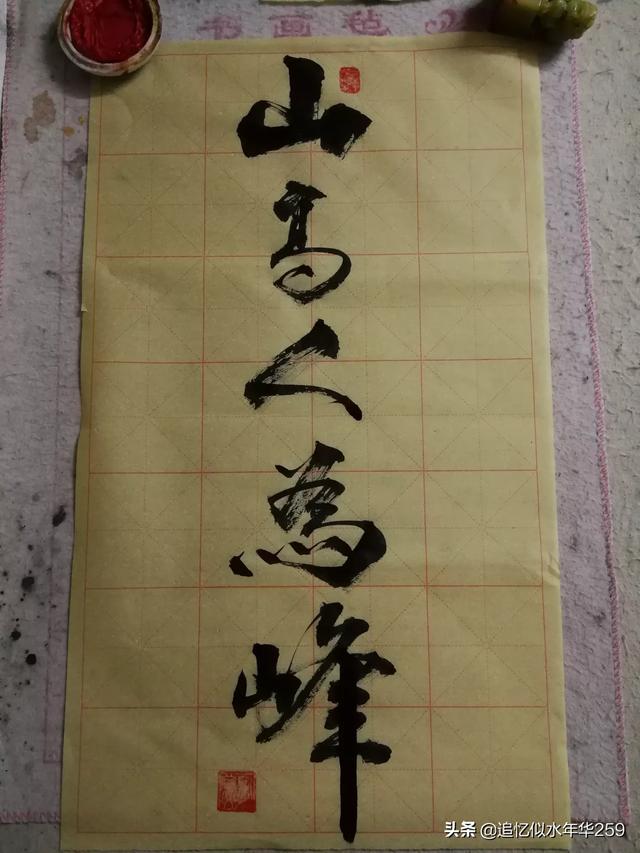 书画毡
山高人為峰
头条 @追忆似水年华259